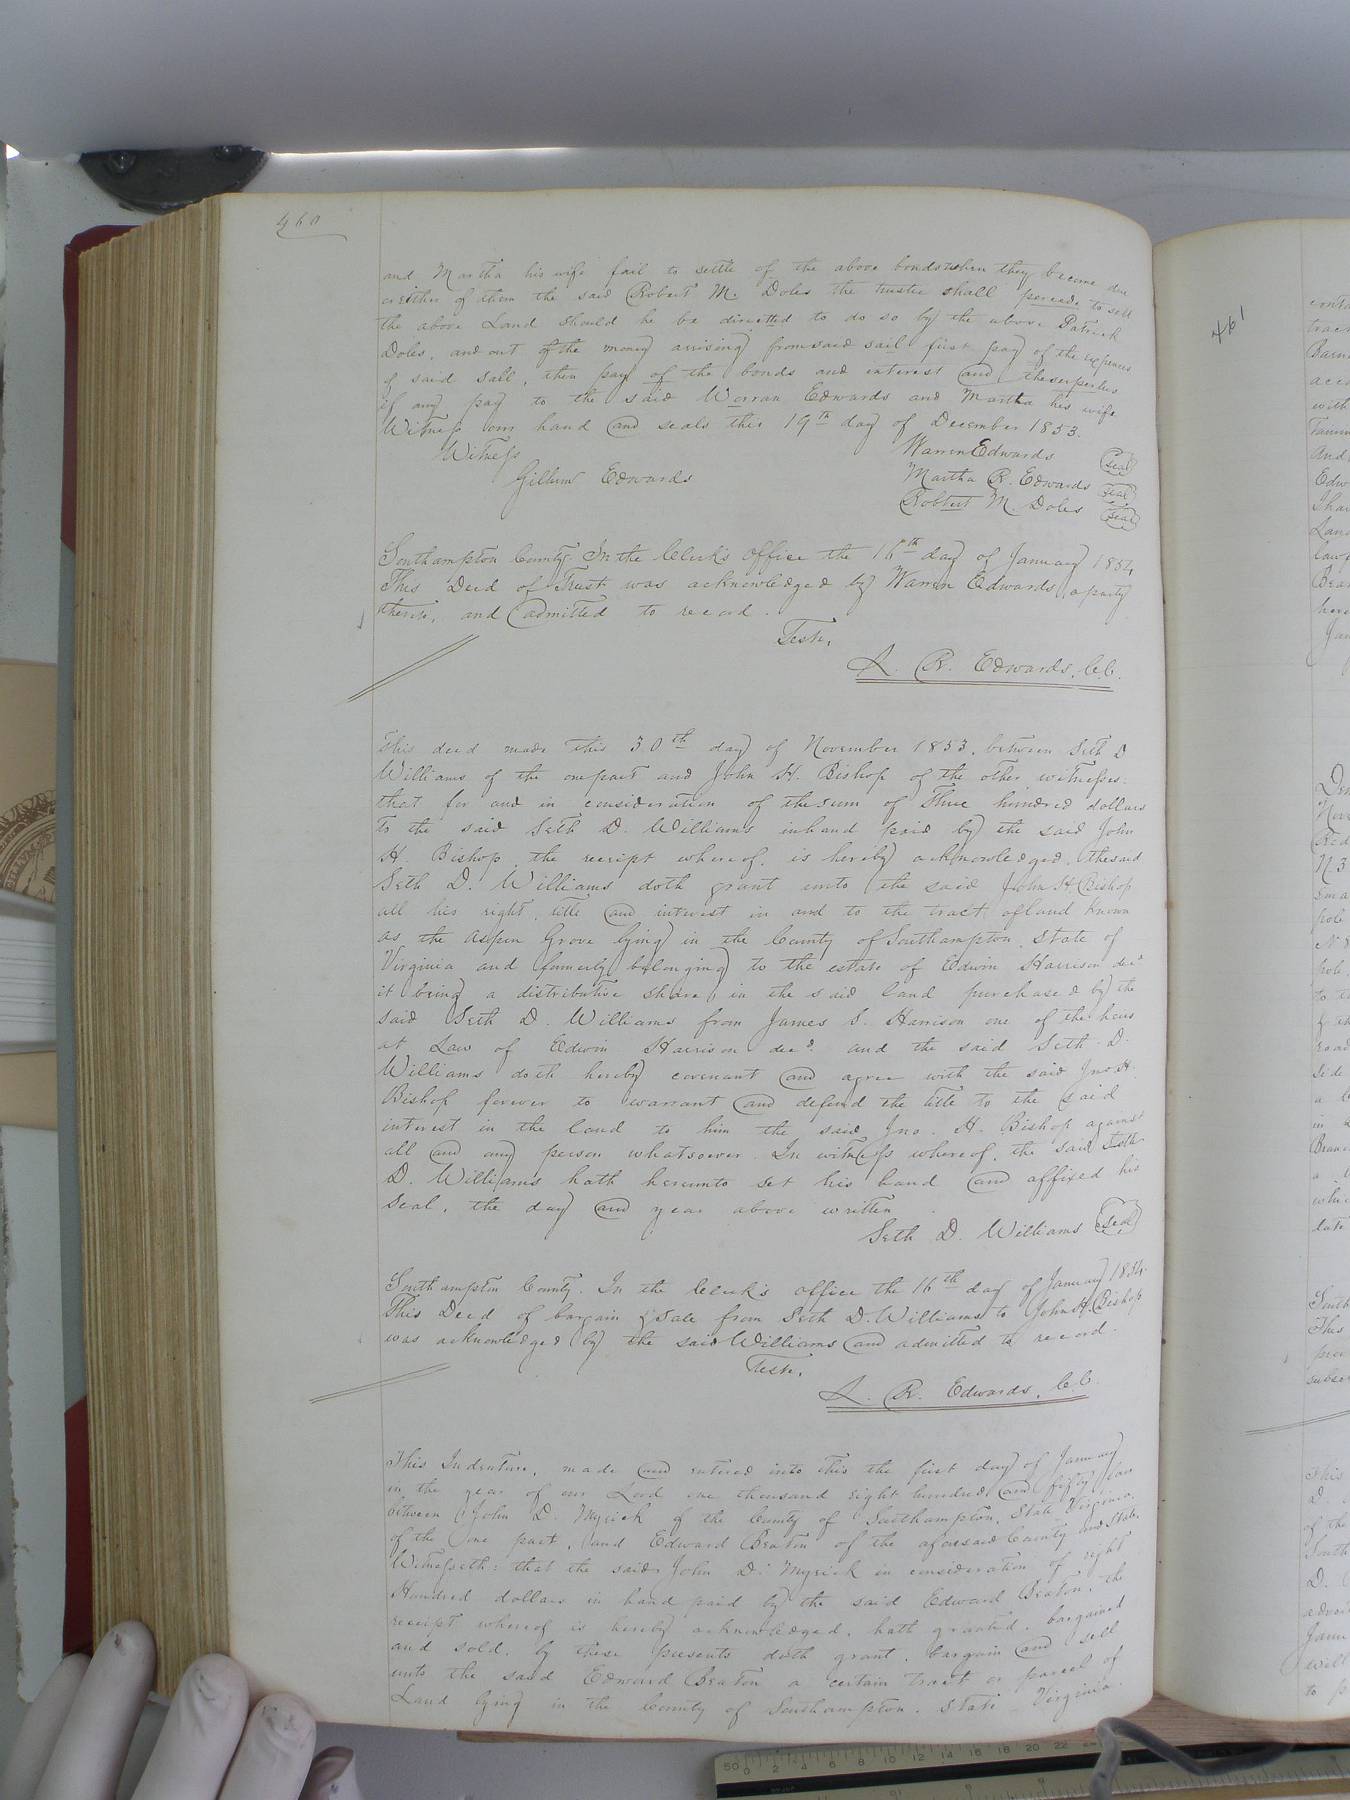 460
and Martha his wife fail to settle of the above bonds when they become due
or either of them the said Robert M. Doles the trustee shall perceede to sell
the above Land should he be directted to do so by the above Patrick
Doles, and out of the money arrising from said sail first pay of the expences
of said sall, then pay of the bonds and interest and the serperlus
if any pay to the said Worran Edwards and Martha his wife
Witness our hand and seals this 19th day of December 1853.
Witness
Warren Edwards seal
Gillum Edwards
Martha R. Edwards seal
Robtert M. Doles seal
Southampton County. In the Clerk's office the 16th day of January 1854
This Deed of Trust was acknowledged by Warren Edwards a party
thereto, and admitted to record.
Teste,
L. R. Edwards, C.C.
This deed made this 30th day of November 1853, between Seth D
Williams of the one part and John H. Bishop of the other witnesses:
that for and in consideration of the sum of Three hundred dollars
to the said Seth D. Williams in hand paid by the said John
H. Bishop, the receipt whereof, is hereby acknowledged, the said
Seth D. Williams doth grant unto the said John H. Bishop
all his right, title and interest in and to the tract of land known
as the Aspen Grove lying in the County of Southampton, State of
Virginia and formerly belonging to the estate of Edwin Harrison decd
it being a distributive share, in the said land purchased by the
said Seth D. Williams from James S. Harrison one of the heirs
at Law of Edwin Harrison decd. and the said Seth D.
Williams doth hereby covenant and agree with the said Jno. H.
Bishop forever to warrant and defend the title to the said
interest in the land to him the said Jno. H. Bishop against
all and any person whatsoever. In witness whereof, the said Seth
D. Williams hath hereunto set his hand and affixed his
Seal, the day and year above written.
Seth D. Williams seal
Southampton County. In the Clerk's office the 16th day of January 1854.
This Deed of bargain & sale from Seth D. Williams to John H. Bishop
was acknowledged by the said Williams and admitted to record.
Teste,
L. R. Edwards, C.C.
This Indenture, made and entered into this the first day of January
in the year of our Lord one thousand eight hundred and fifty four
between John D. Myrick of the County of Southampton, State Virginia.
of the one part, and Edward Beaton of the aforesaid County and State.
Witnesseth: that the said John D. Myrick in consideration of eight
Hundred dollars in hand paid by the said Edward Beaton, the
receipt whereof is hereby acknowledged, hath granted, bargained
and sold, by these presents doth grant, bargain and sell
unto the said Edward Beaton a certain tract or parcel of
Land lying in the County of Southampton, State Virginia.
461